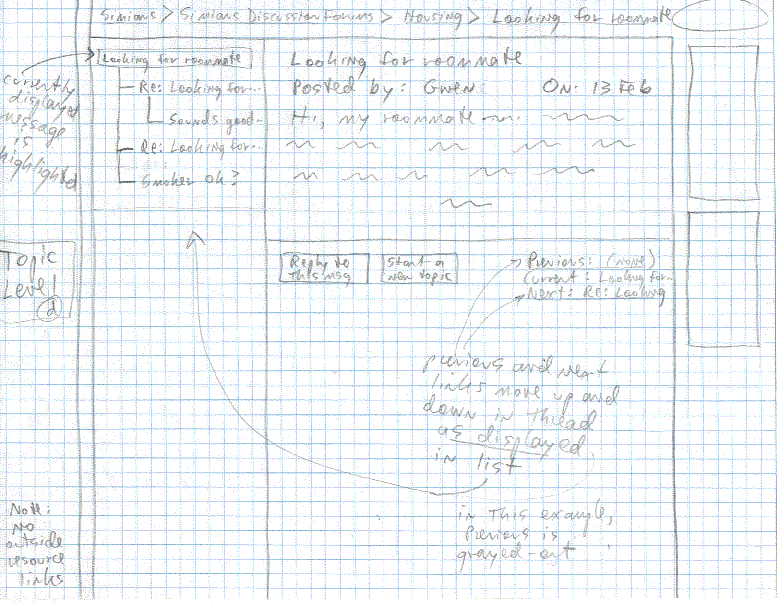 Simians > Simians Discussion Forums > Housing > Looking for roommate
Looking for roommate
Re: Looking for...
Sounds good...
Re: Looking for...
Smoker ok?
Looking for roommate
Posted by: Gwen ON: 13 Feb
Hi, my roommate
Reply to
this msg
Start a
new topic
Previous: (none)
Current: Looking for...
Next: Re: Looking
currently
displayed
message
is
highlighted
Topic
Level
d
previous and next
links move up and
down in thread
as displayed
in list
in this example,
previous is
grayed-out
Note:
NO
outside
resource
links